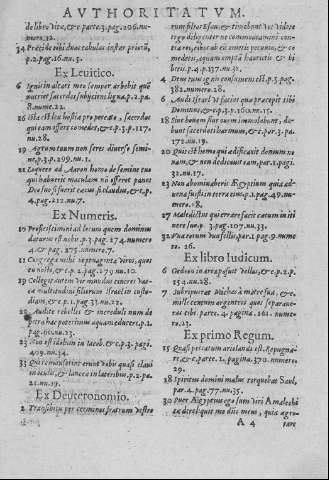 AVTHORITATVM.
de libro vitæ, & c. parte 3. pag. 206. nu-
mero. 32.
34 Præcide tibi duas tabulas instar priorũ,
p. 2. pag. 16. nu. 5.
Ex Leuitico.
6 Ignis in altari meo semper arbebit quẽ
nutriet sacerdos subijciens ligna. p. 2. pa.
8. nume. 22.
26 Ista est lex hostiæ pro peccato, sacerdos
qui eam offert comedet, & c. p. 3. p. 117.
nu. 28.
19 Agrum tuum non seres diuerso semi-
ne. p. 3. p. 299. nu. 1.
21 Loquere ad Aaron homo de semine tuo
qui habuerit maculam nõ offeret panes
Deo suo si fuerit cæcus si claudus, & c. p.
4. pag. 212. nu. 7.
Ex Numeris.
10 Proficiscimini ad locum quem dominus
daturus est nobis. p. 3. pag. 274. numero
4. & pag. 275. numero. 7.
11 Congrega mihi septuaginta viros, quos
tu nosti, & c. p. 2. pag. 279. nu. 10.
19 Colliget autem vir mundus cineres vaccæ
& c. multitudini filiorum Israel in custo-
diam, & c. p. 1. pag. 33. nu. 22.
20 Audite rebelles & increduli num de
petra hac poterimus aquam educere. p. 1.
pag. 60. nu. 23.
23 Non est idolum in Iacob, & c. p. 3. pagi.
409. nu. 34.
33 Qui remanserint erunt vobis quasi claui
in oculis, & lancea in lateribus. p. 2. pa.
21. nu. 19.
Ex Deuteronomio.
2 Transibitis per terminos fratrum vestro
rum filiorum Esau, & timebunt vos videte
ergo diligenter ne commoueamini con-
tra eos, cibos ab eis emetis pecunia, & co
medetis, aquam emptã haurietis & bi-
betis. p. 4. p. 337. nu. 31.
4 Deus tuus ignis consumens est. p. 3. pag.
382. numero. 28.
6 Audi Israel & facies quæ præcepit tibi
Dominus, & c. par. 4. pag. 189. nu. 10.
18 Siue bouem siue ouem immolabunt, da-
bunt sacerdoti harmum, & c. par. 3. pa.
172. nu. 19.
20 Quis est homo qui ædificauit domum no-
uam, & non dedicauit eam, par. 1. pagi.
32. nu. 17.
23 Non abominaberis Ægyptium quia ad-
uena fuisti in terra eius. p. 1. pag. 49. nu-
mero. 18.
27 Maledictus qui errare facit cæcum in iti-
nere suo. p. 3. pag. 107. nu. 33.
32 Vua eorum vua fellis. par. 1. pag. 9. nume
ro. 26.
Ex libro Iudicum.
6 Gedeon in area posuit vellus, & c. p. 2. p.
154. nu. 28.
7 Surripuerat Michas à matre sua, & c.
mille centum argenteos quos separaue-
rat tibi. parte. 4. pagina. 261. numero.
23.
Ex primo Regum.
15 Quasi peccatum ariolandi est, Repugna-
re, & c. parte. 1. pagina. 370. numero.
29.
18 Spiritus domini malus torquebat Saul,
par. 4. pag. 77. nu. 35.
30 Puer Ægyptius ego sum viri Amalechi
tæ dereliquit me dñs meus, quia ægro-
A 4 tare